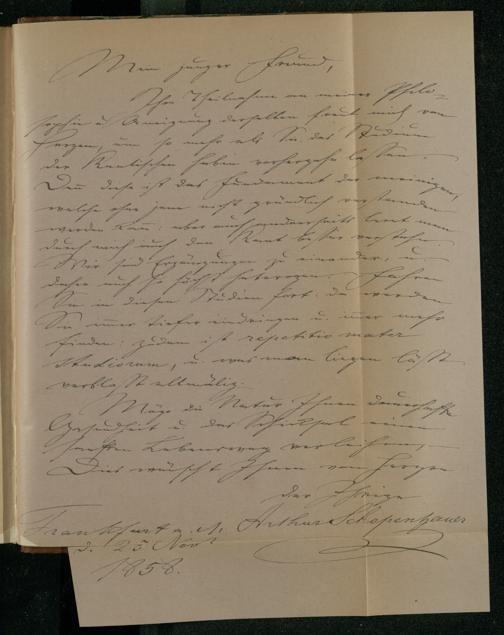 Mein junger Freund,
Ihre Theilnahme an meiner Philo-
sophie u. Aneignung derselben freut mich von
Herzen, um so mehr als Sie das Studium
der Kantischen haben vorhergehn lassen.
Denn diese ist das Fundament der meinigen,
welche ohne jene nicht gründlich verstanden
werden kann: aber auch andererseits lernt man
durch mich auch den Kant besser verstehn.
Wir sind Ergänzungen zu einander, u.
daher auch so höchst heterogen. Fahren
Sie in diesen Studien fort: da werden
Sie immer tiefer eindringen u. immer mehr
finden: zudem ist repetitio mater
studiorum, u. was man liegen läßt
verblaßt allmälig.
Möge die Natur Ihnen dauerhafte
Gesundheit u. das Schicksal einen
sanften Lebensweg verleihen,
Dies wünscht Ihnen von Herzen
der Ihrige
Frankfurt a. M. Arthur Schopenhauer
d. 25 Novr
1858.